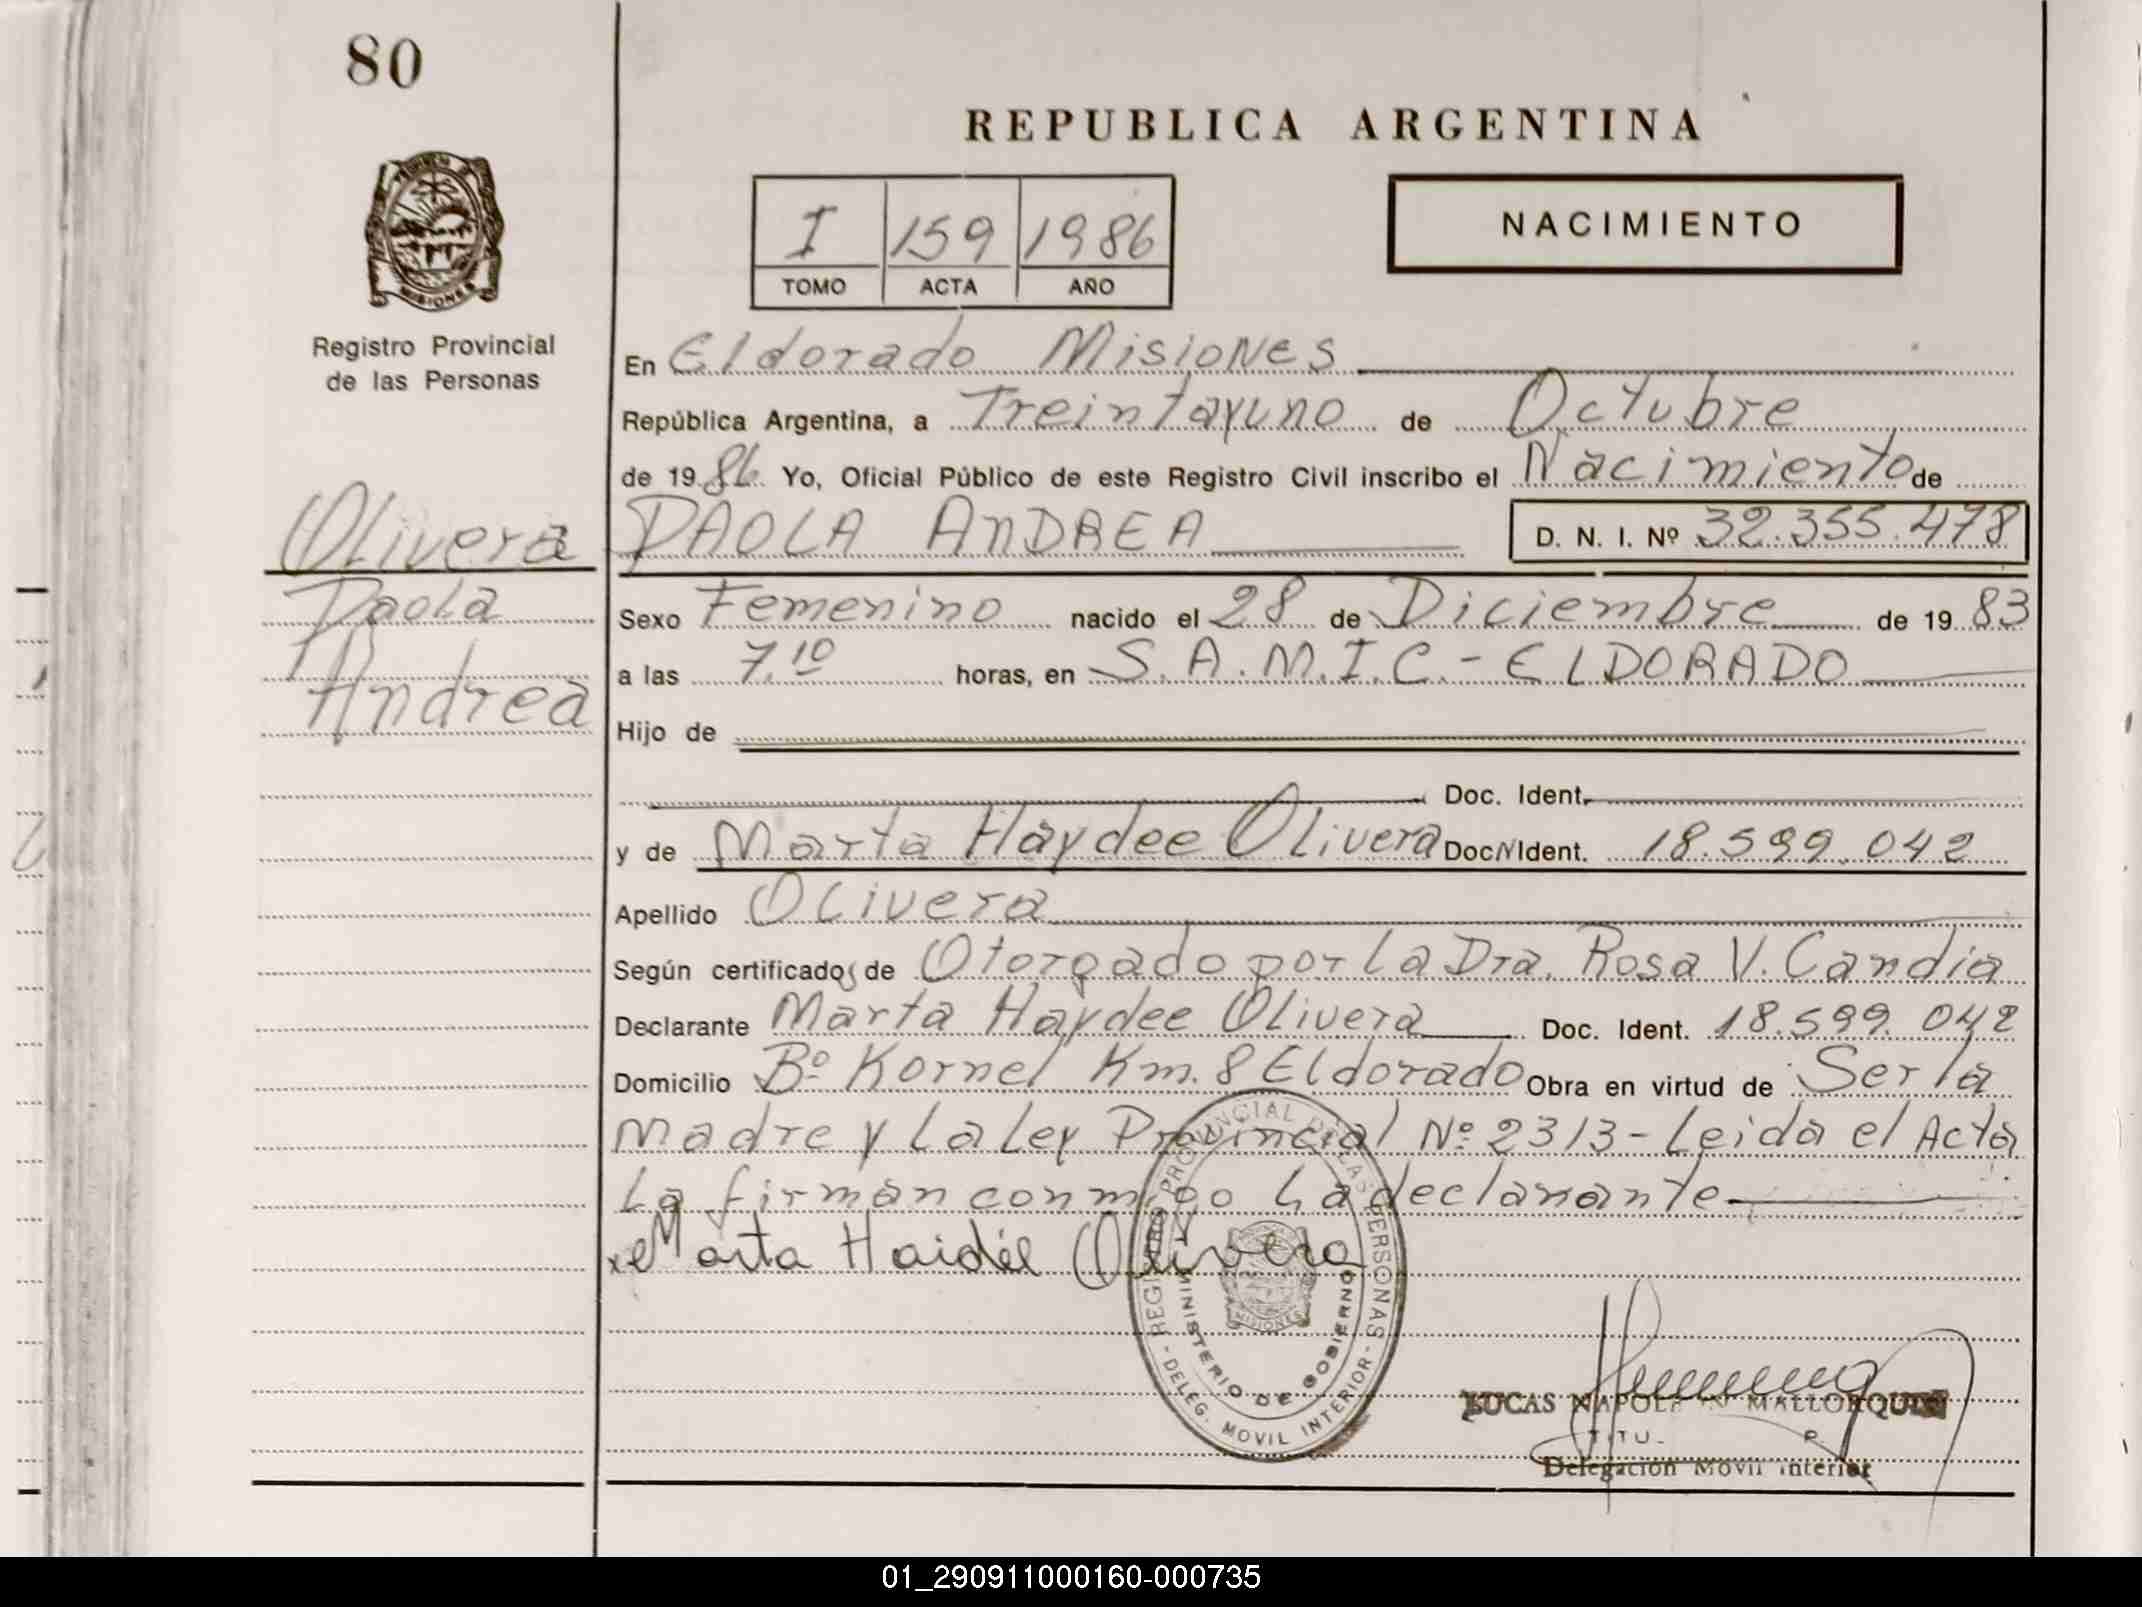 80
REPUBLICA ARGENTINA
NACIMIENTO
I 159 1986
TOMO ACTA AÑO
MISIONES
Registro Provincial
de las Personas
En Eldorado Misiones
República Argentina, a Treintayuno de Octubre
de 1986 Yo, Oficial Público de este Registro Civil inscribo el Nacimiento de
Olivera
Paola
Andrea
PAOLA ANDREA D. N. I. Nº 32.355.478
Sexo Femenino nacido el 28 de Diciembre de 1983
a las 7.10 horas, en S.A.M.I.C.- ELDORADO
Hijo de
Doc. Ident.
y de Marta Haydee Olivera Doc. Ident. 18.599.042
Apellido Olivera
Según certificados de Otorgado por La Dra. Rosa V. Candia
Declarante Marta Haydee Olivera Doc. Ident. 18.599.042
Domicilio Bº Kornel Km. 8 Eldorado Obra en virtud de Ser la
Madre y La Ley Provincial Nº 2313- Leida el Acta
La firman conmigo La declarante
Marta Haidée Olivera
REGISTRO PROVINCIAL DE LAS PERSONAS
MINISTERIO DE GOBIERNO
MISIONES
- DELEG. MOVIL INTERIOR -
LUCAS NAPOLEON MALLORQUIN
Delegación Movil Interior
01_290911000160-000735